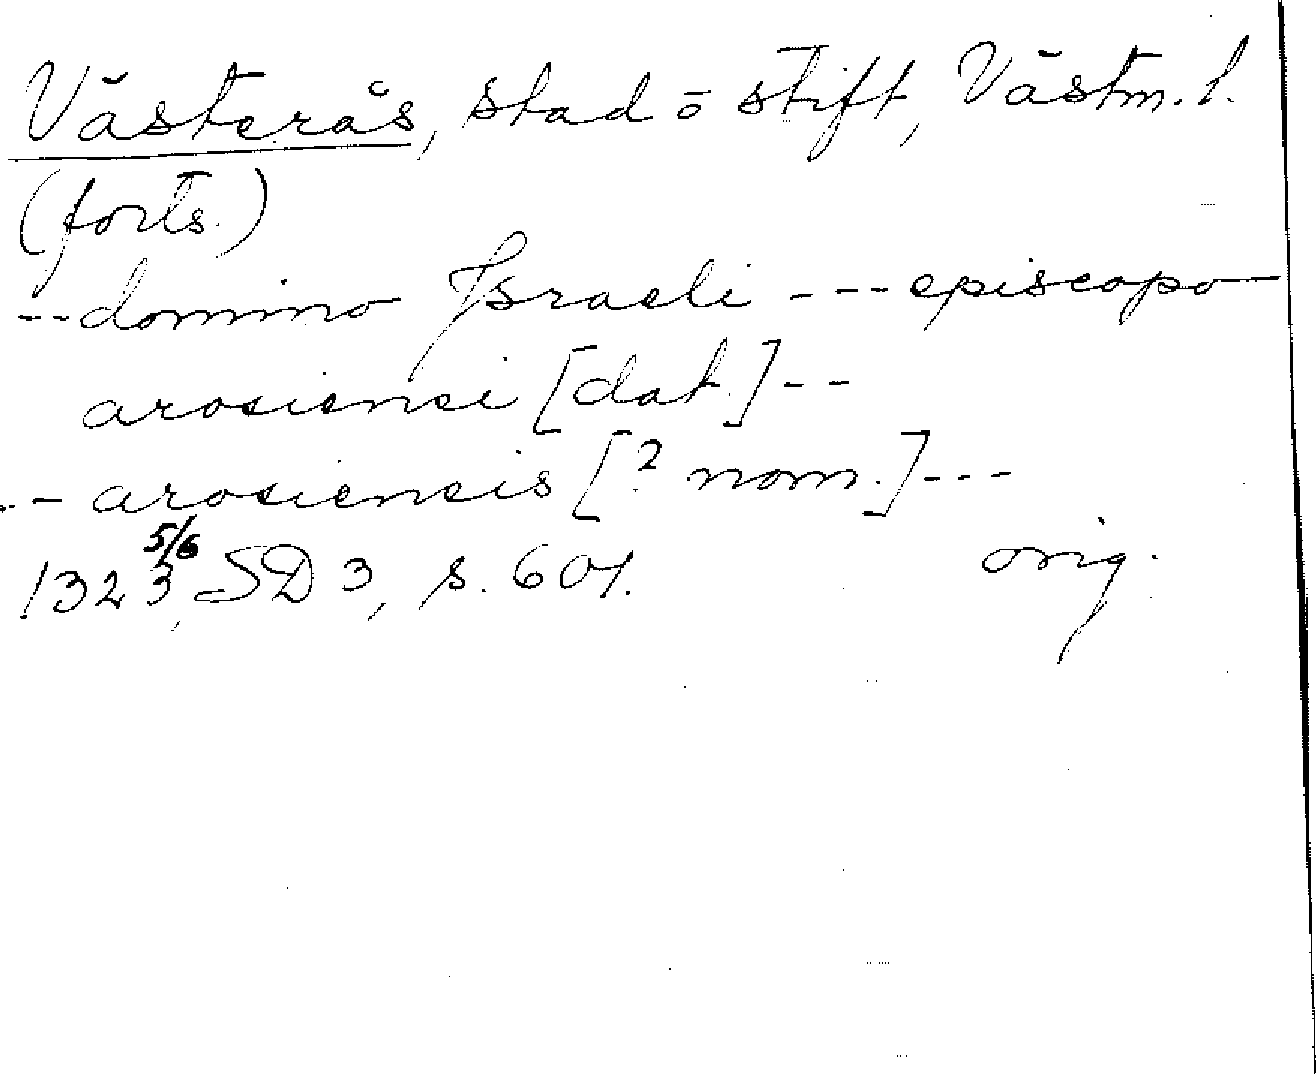 Västerås, stad o stift, Västm. l.
(forts.)
-- domino Israeli --- episcopo
arosiensi [dat.] --
-- arosiensis [? nom.] ---
1323 5/6, SD 3, s. 601. orig.